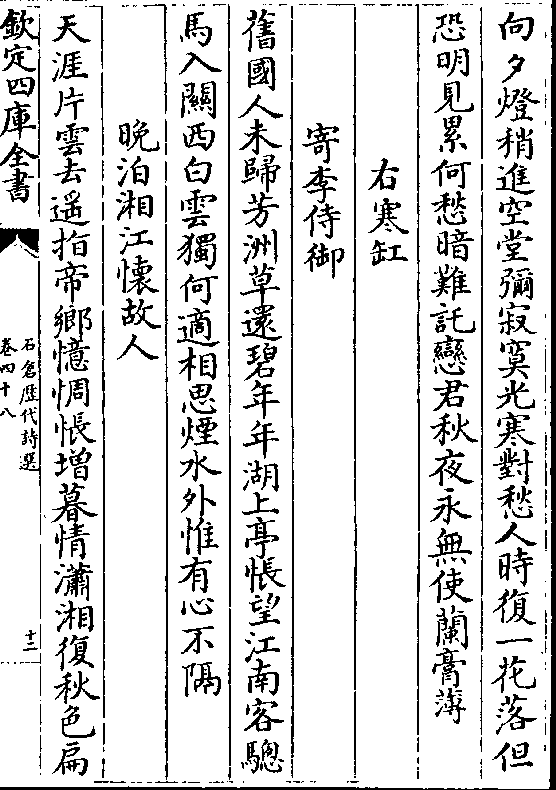 向夕燈稍進空堂彌寂寞光寒對愁人時復一花落但
恐明見累何愁暗難託戀君秋夜永無使蘭膏薄
右寒缸
寄李侍御
舊國人未歸芳洲草還碧年年湖上亭悵望江南客驄
馬入關西白雲獨何適相思煙水外惟有心不隔
晚泊湘江懷故人
天涯片雲去遥指帝鄉憶惆悵增暮情瀟湘復秋色扁
欽定四庫全書
石倉歷代詩選
卷四十八
十三